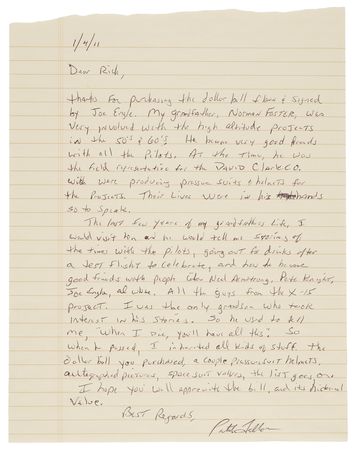 1/4/11
Dear Rich,
Thanks for purchasing the dollar bill flown & signed
by Joe Engle. My grandfather, Norman Foster, was
very involved with the high altitude projects
in the 50's & 60's. He knew very good friends
with all the Pilots. At the time, he was
the field representative for the David Clark CO.
witch were producing pressure suits & helmets for
the Projects. Their lives were in his hands
so to speak.
The last few years of my grandfathers life, I
would visit him and he would tell me stories of
the times with the pilots, going out for drinks after
a test flight to celebrate, and how he became
good friends with people like Neil Armstrong, Pete Knight,
Joe Engle, al white. All the guys from the X-15
project. I was the only grandson who took
interest in his stories. So he used to tell
me, "when I die, you'll have all this." So
when he passed, I inherited all kinds of stuff. The
dollar bill you purchased, a couple pressure suit helmets,
autographed pictures, space suit valves, the list goes on.
I hope you will appreciate the bill, and its historical
value.
Best Regards,